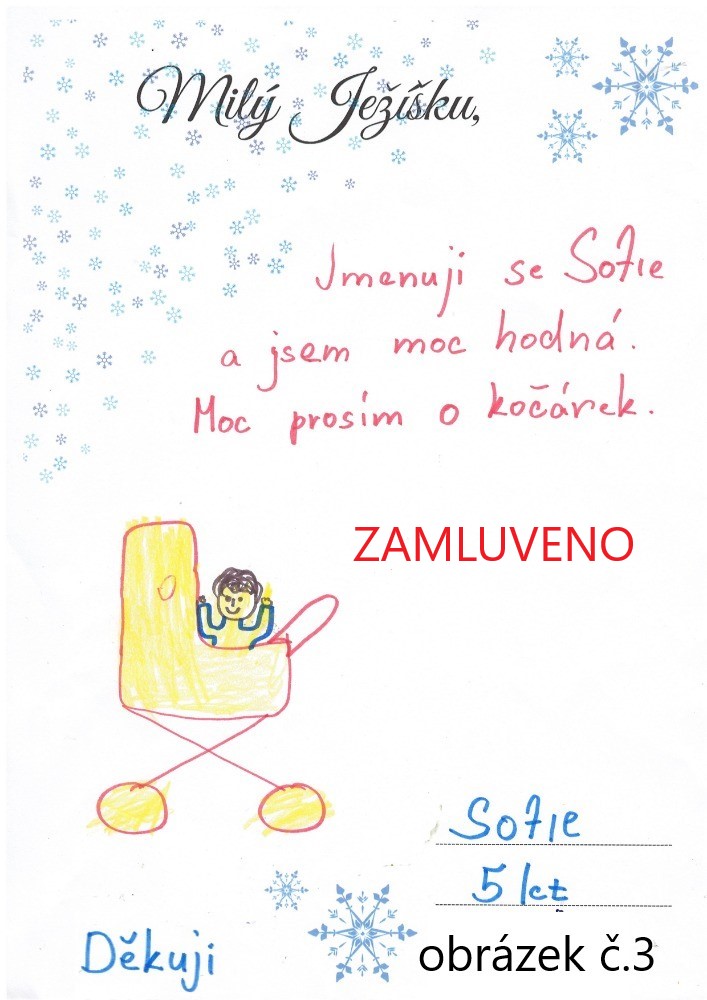 Milý Ježíšku,
Jmenuji se Sofie
a jsem moc hodná.
Moc prosím o kočárek.
ZAMLUVENO
Sofie
5 let
Děkuji
obrázek č.3